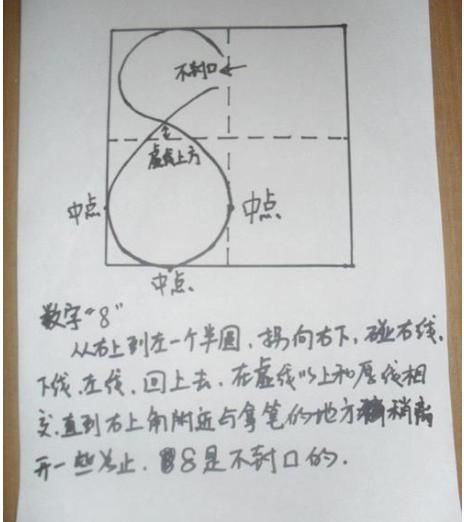 不封口
虚线上方
中点
中点
中点
数字“8”
从右上到左一个半圆，拐向右下，碰右线，
下线，左线，回上去，在虚线以上和原线相
交，直到右上角附近与拿笔的地方稍离
开一些为止，8是不封口的.